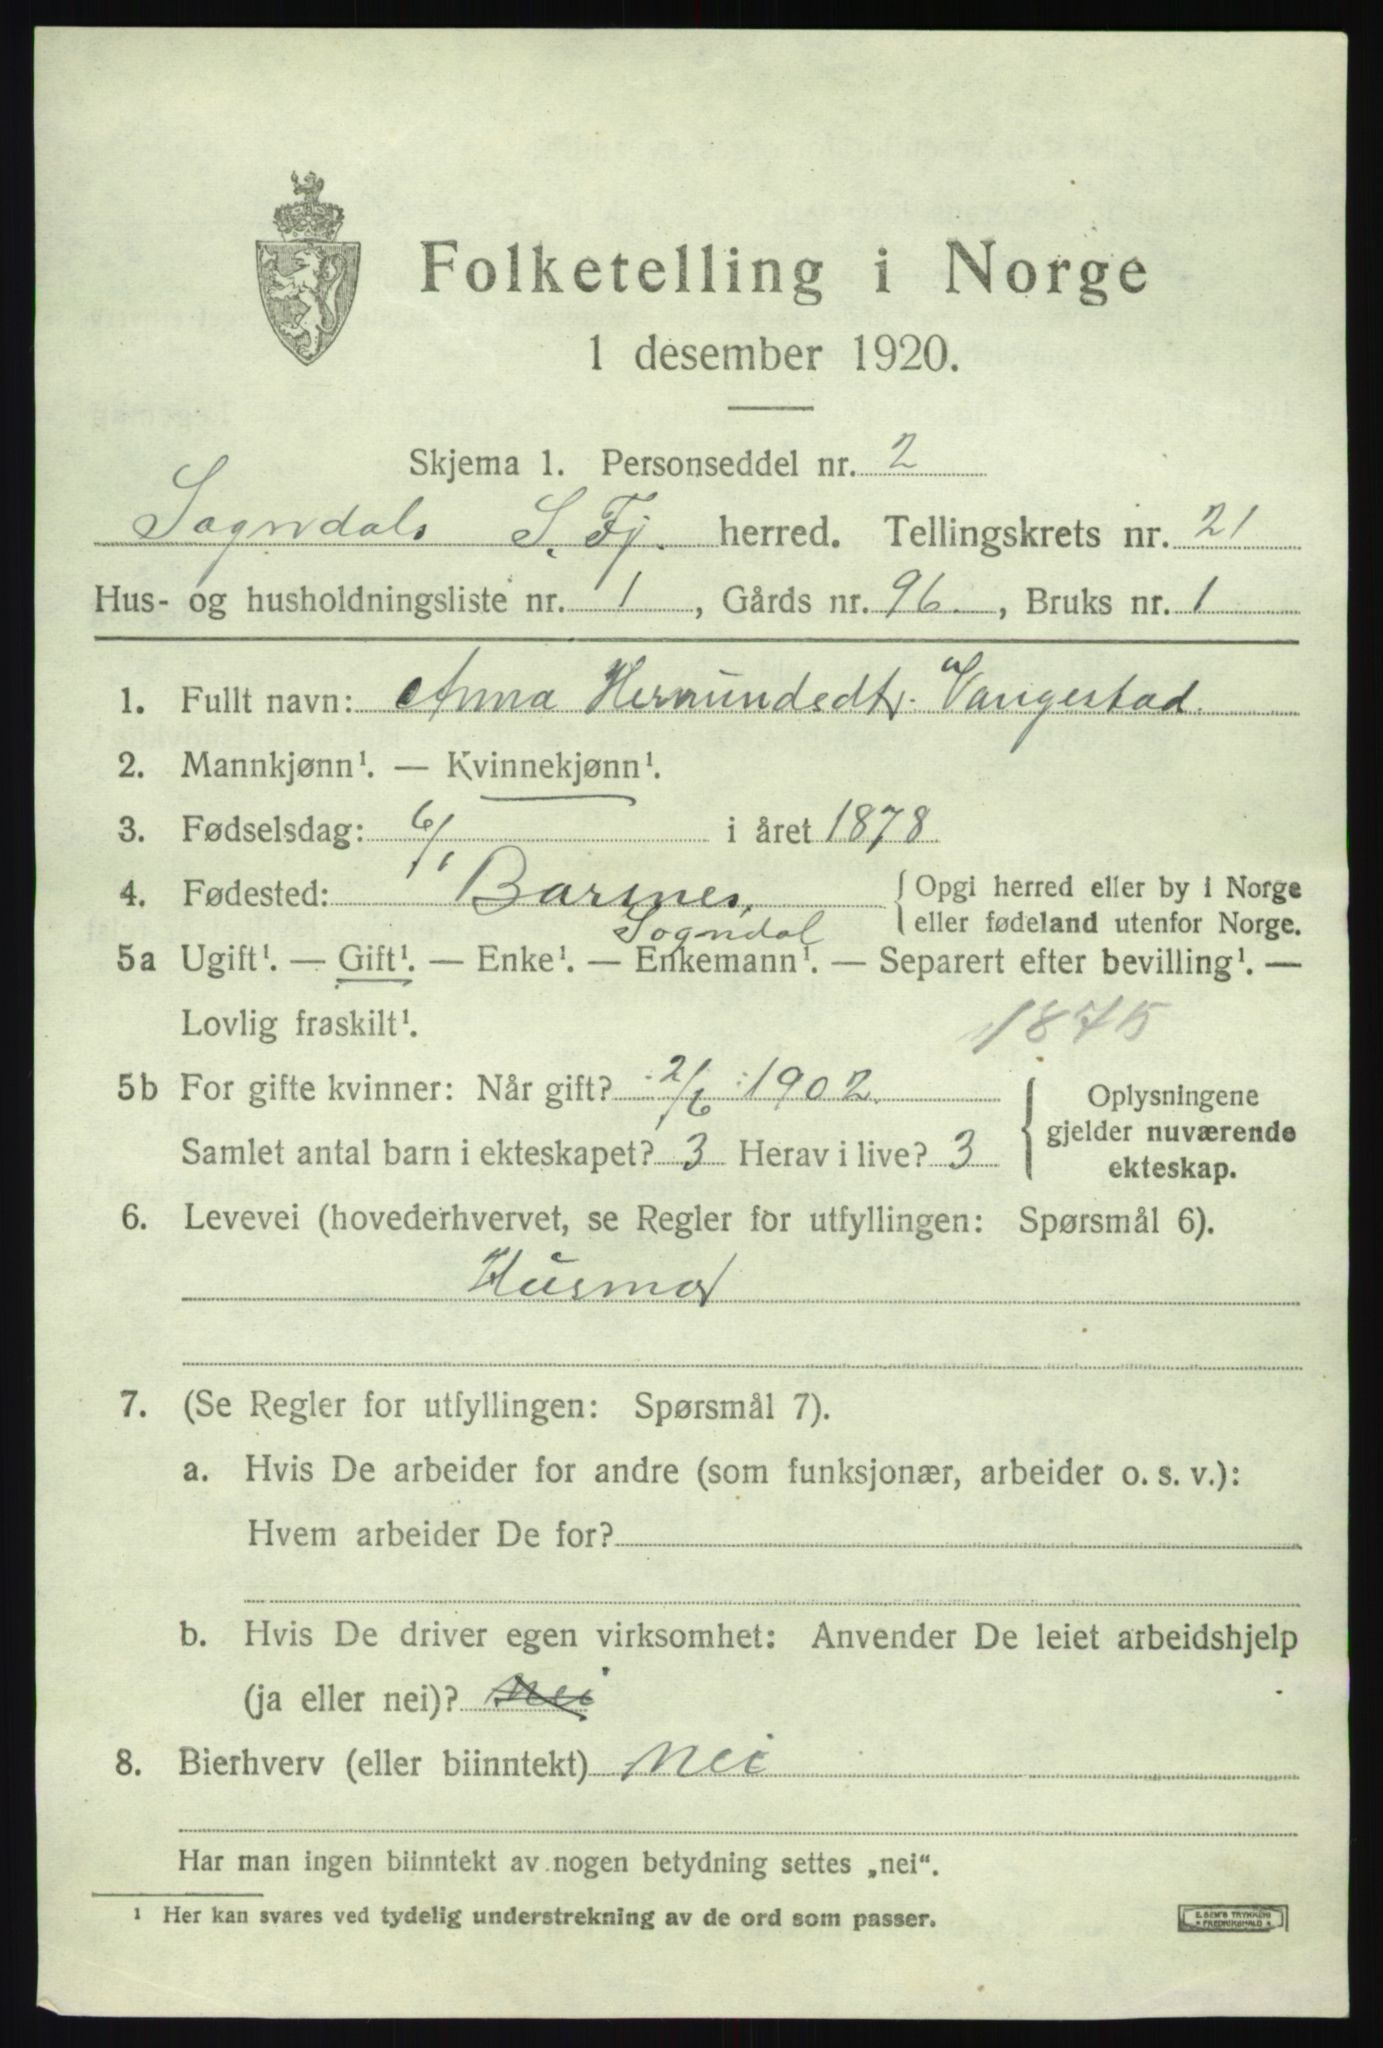 Folketelling i Norge
1 desember 1920.
Skjema 1. Personseddel nr. 2
Sogndals S. Fj. herred. Tellingskrets nr. 21
Hus- og husholdningsliste nr. 1, Gårds nr. 96., Bruks nr. 1
1. Fullt navn: Anna Hermundsdtr. Vangestad
2. Mannkjønn¹. — Kvinnekjønn¹.
3. Fødselsdag: 6/1 i året 1878
4. Fødested: Barsnes, { Opgi herred eller by i Norge
Sogndal eller fødeland utenfor Norge.
5a Ugift¹. — Gift¹. — Enke¹. — Enkemann¹. — Separert efter bevilling¹. —
Lovlig fraskilt¹. 1875
5b For gifte kvinner: Når gift? 2/6 1902. { Oplysningene
gjelder nuværende
Samlet antal barn i ekteskapet? 3 Herav i live? 3 ekteskap.
6. Levevei (hovederhvervet, se Regler for utfyllingen: Spørsmål 6).
Husmor
7. (Se Regler for utfyllingen: Spørsmål 7).
a. Hvis De arbeider for andre (som funksjonær, arbeider o. s. v.):
Hvem arbeider De for?
b. Hvis De driver egen virksomhet: Anvender De leiet arbeidshjelp
(ja eller nei)? nei
8. Bierhverv (eller biinntekt) Nei
Har man ingen biinntekt av nogen betydning settes „nei“.
¹ Her kan svares ved tydelig understrekning av de ord som passer.
E. SEM'S TRYKKERI
* FREDRIKSHALD *